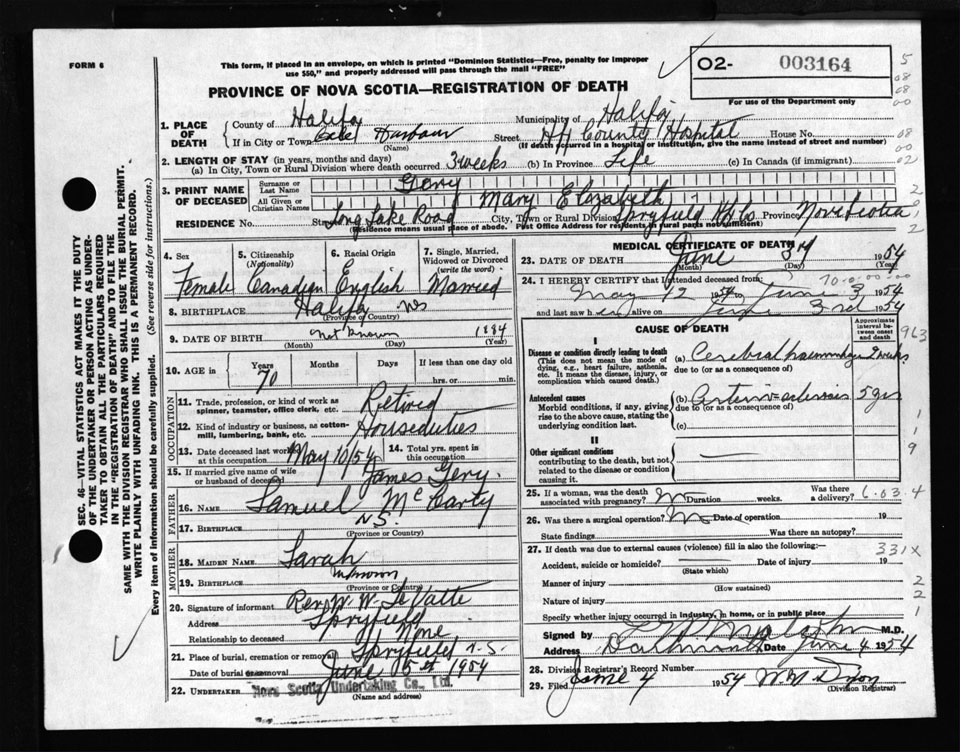 FORM 6
This form, if placed in an envelope, on which is printed "Dominion Statistics—Free, penalty for improper
use $50," and properly addressed will pass through the mail "FREE"
O2- 003164
For use of the Department only
PROVINCE OF NOVA SCOTIA—REGISTRATION OF DEATH
1. PLACE OF DEATH
County of Halifax Municipality of Halifax
If in City or Town Cole Harbour (Name) Street Hfx County Hospital House No.
(If death occurred in a hospital or institution, give the name instead of street and number)
2. LENGTH OF STAY (in years, months and days)
(a) In City, Town or Rural Division where death occurred 3 weeks (b) In Province Life (c) In Canada (if immigrant)
3. PRINT NAME OF DECEASED
Surname or Last Name Gery
All Given or Christian Names Mary Elizabeth
RESIDENCE No. Street Long Lake Road City, Town or Rural Division Spryfield Hfx Co Province Nova Scotia
(Residence means usual place of abode. Post Office Address for residents in rural parts not sufficient)
4. Sex Female
5. Citizenship (Nationality) Canadian
6. Racial Origin English
7. Single, Married, Widowed or Divorced (write the word) Married
8. BIRTHPLACE Halifax NS
(Province or Country)
9. DATE OF BIRTH not known 1884
(Month) (Day) (Year)
10. AGE in Years 70 Months Days If less than one day old
hrs. or min.
OCCUPATION
11. Trade, profession, or kind of work as
spinner, teamster, office clerk, etc. Retired
12. Kind of industry or business, as cotton-
mill, lumbering, bank, etc. Houseduties
13. Date deceased last worked at this occupation May 10/54
14. Total yrs. spent in this occupation
15. If married give name of wife
or husband of deceased James Gery.
FATHER
16. NAME Samuel McCarty
17. BIRTHPLACE N.S.
(Province or Country)
MOTHER
18. MAIDEN NAME Sarah
19. BIRTHPLACE unknown
(Province or Country)
20. Signature of informant Rev. W. W.
Address Spryfield
Relationship to deceased None
21. Place of burial, cremation or removal Spryfield N.S.
Date of burial or removal June 5st 1954
22. UNDERTAKER Nova Scotia Undertaking Co., Ltd.
MEDICAL CERTIFICATE OF DEATH
23. DATE OF DEATH June 1954
(Month) (Day) (Year)
24. I HEREBY CERTIFY that I attended deceased from:
May 12 1954 to June 3 1954
and last saw her alive on June 3rd 1954
CAUSE OF DEATH
Approximate interval between onset and death
I
Disease or condition directly leading to death
(This does not mean the mode of
dying, e.g., heart failure, asthenia,
etc. It means the disease, injury, or
complication which caused death.)
(a) Cerebral haemorrhage 2 weeks
due to (or as a consequence of)
Antecedent causes
Morbid conditions, if any, giving
rise to the above cause, stating the
underlying condition last.
(b) Arterio-sclerosis 5 yrs
due to (or as a consequence of)
(c)
II
Other significant conditions
contributing to the death, but not
related to the disease or condition
causing it.
25. If a woman, was the death
associated with pregnancy? Duration weeks. Was there a delivery?
26. Was there a surgical operation? No Date of operation 19
State findings Was there an autopsy?
27. If death was due to external causes (violence) fill in also the following:—
Accident, suicide or homicide? Date of injury 19
(State which)
Manner of injury
(How sustained)
Nature of injury
Specify whether injury occurred in industry, in home, or in public place
Signed by M.D.
Address Dartmouth Date June 4 1954
28. Division Registrar's Record Number
29. Filed June 4 1954 W. M. Dixon
(Division Registrar)
963
6.03.4
331X
SEC. 46—VITAL STATISTICS ACT MAKES IT THE DUTY
OF THE UNDERTAKER OR PERSON ACTING AS UNDER-
TAKER TO OBTAIN ALL THE PARTICULARS REQUIRED
IN THE "REGISTRATION OF DEATH" AND TO FILE THE
SAME WITH THE DIVISION REGISTRAR WHO SHALL ISSUE THE BURIAL PERMIT.
WRITE PLAINLY WITH UNFADING INK. THIS IS A PERMANENT RECORD.
Every item of information should be carefully supplied. (See reverse side for instructions.)